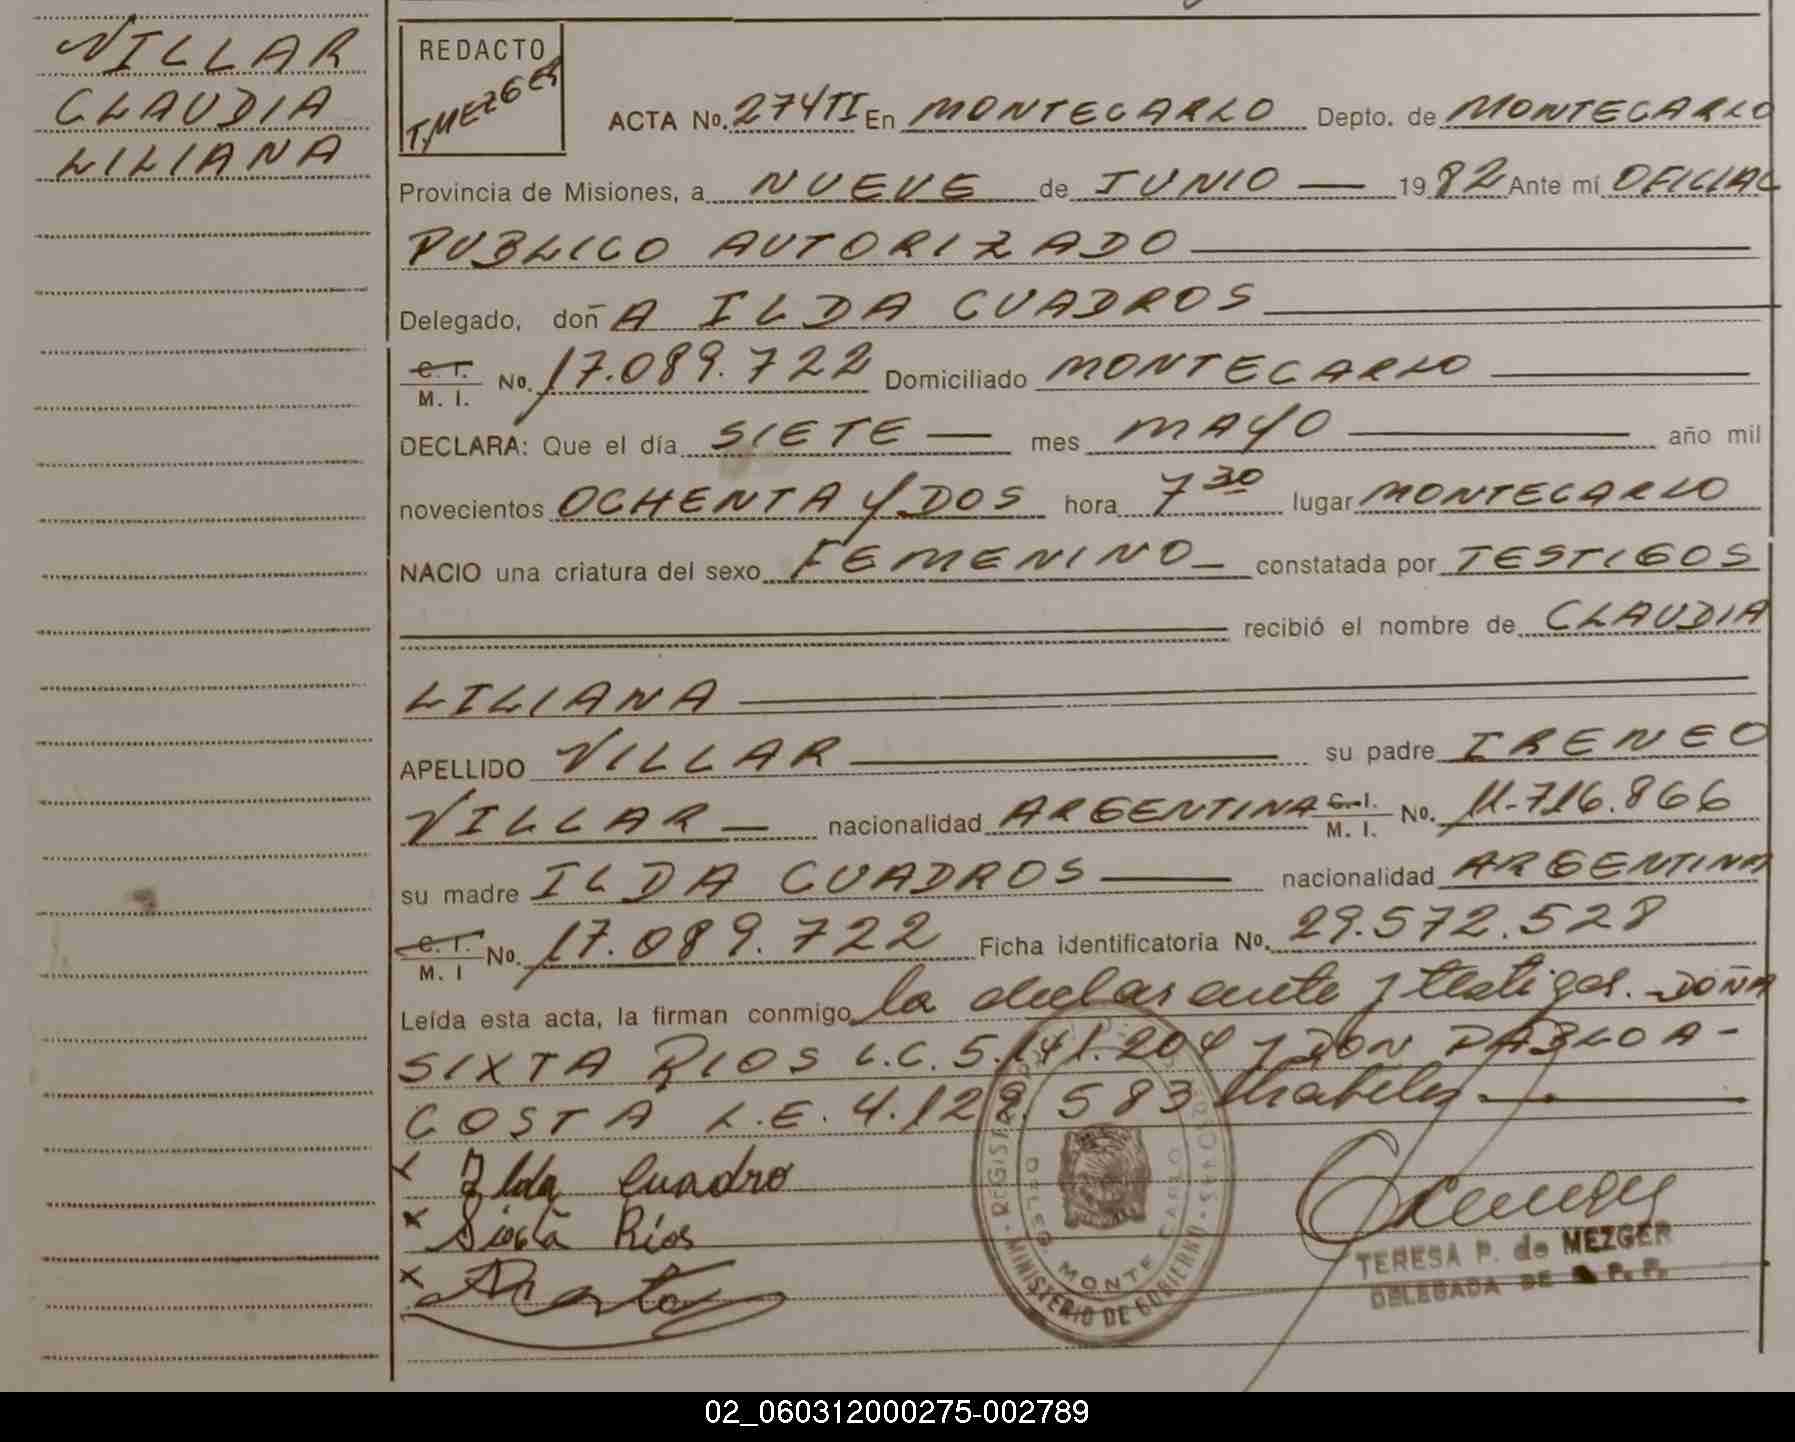 VILLAR
CLAUDIA
LILIANA
REDACTO
T. MEZGER
ACTA No. 274TI En MONTECARLO Depto. de MONTECARLO
Provincia de Misiones, a NUEVE de JUNIO — 1982 Ante mí OFICIAL
PUBLICO AUTORIZADO
Delegado, doñA ILDA CUADROS
C. I. / M. I. No. 17.089.722 Domiciliado MONTECARLO
DECLARA: Que el día SIETE — mes MAYO — año mil
novecientos OCHENTA Y DOS hora 7 30 lugar MONTECARLO
NACIO una criatura del sexo FEMENINO — constatada por TESTIGOS
recibió el nombre de CLAUDIA
LILIANA
APELLIDO VILLAR — su padre IRENEO
VILLAR — nacionalidad ARGENTINA C. I. / M. I. No. 11.716.866
su madre ILDA CUADROS — nacionalidad ARGENTINA
C. I. / M. I No. 17.089.722 Ficha identificatoria No. 29.572.528
Leída esta acta, la firman conmigo la declarante y testigos. DOÑA
SIXTA RIOS L.C. 5.141.204 y DON PABLO A-
COSTA L.E. 4.129.583 habiles.
x Ilda Cuadro
x Sixta Rios
x
REGISTRO DE LAS PERSONAS - MINISTERIO DE GOBIERNO
DELEG. MONTE CARLO
TERESA P. de MEZGER
DELEGADA DE R. P. P.
02_060312000275-002789